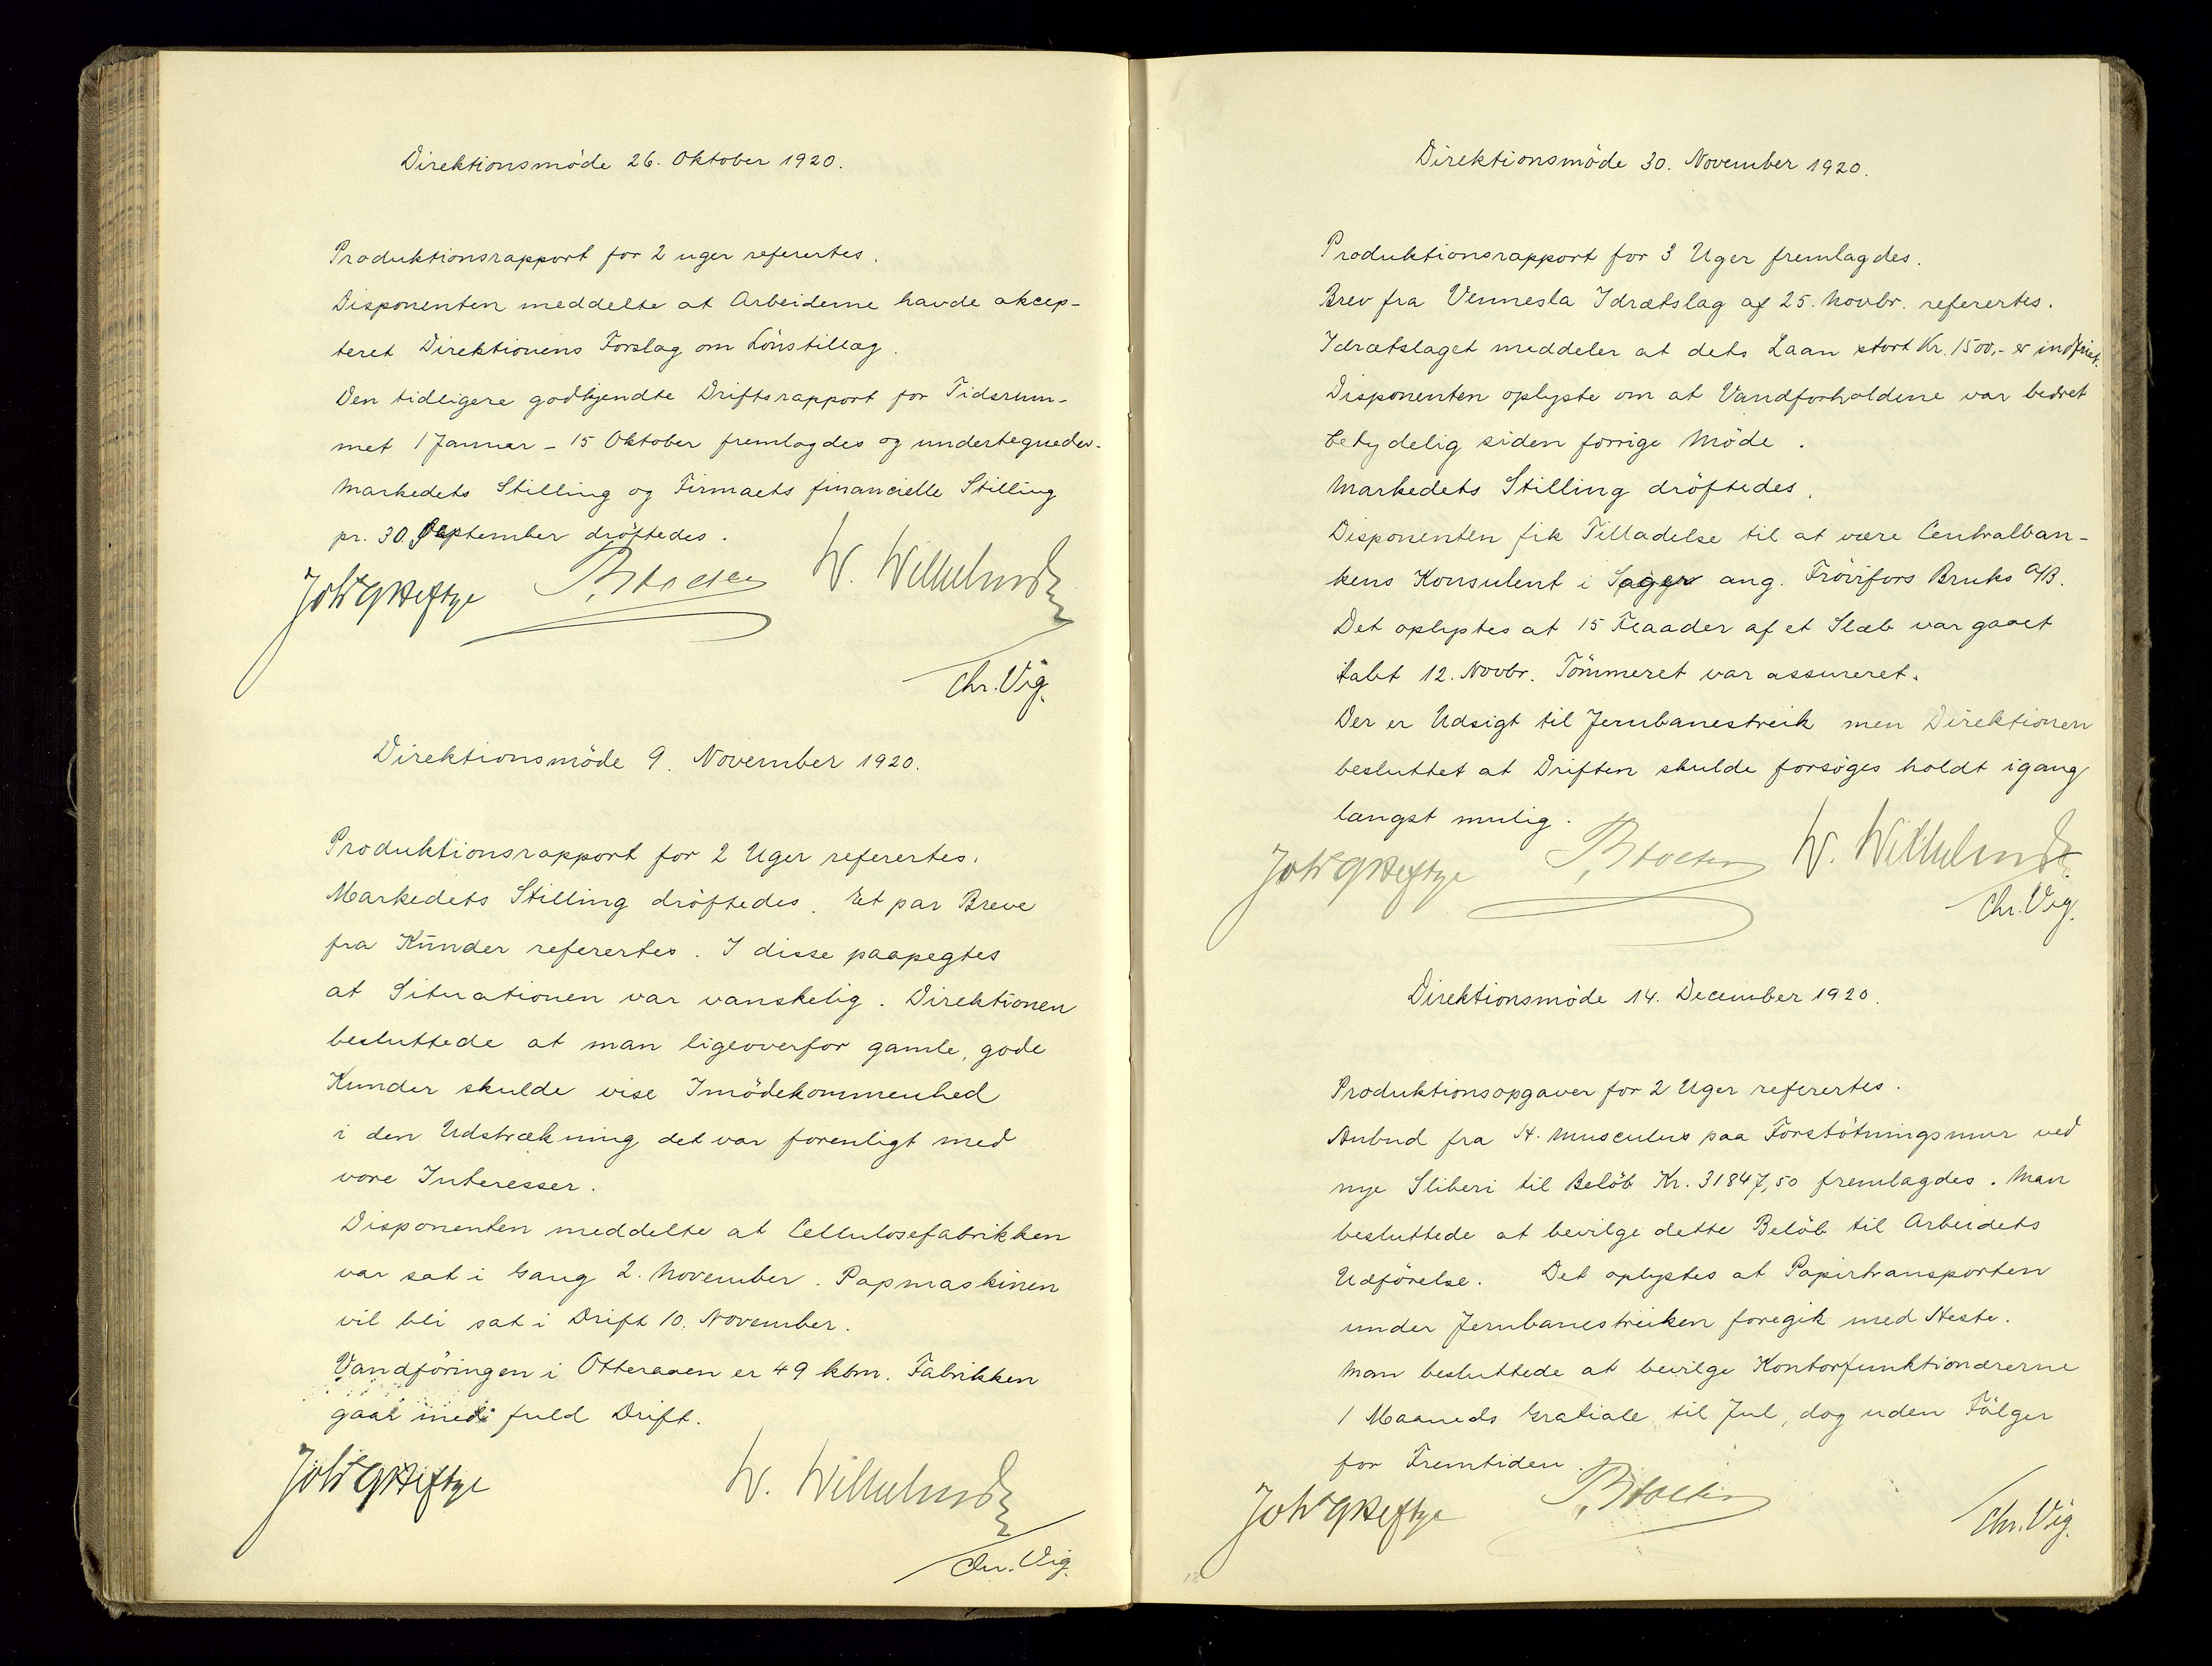 Direktionsmöde 26. Oktober 1920.
Produktionsrapport for 2 uger referertes.
Disponenten meddelte at Arbeiderne havde akcep-
teret Direktionens Forslag om Lönstillæg.
Den tidligere godkjendte Driftsrapport for Tidsrum-
met 1 Januar - 15 Oktober fremlagdes og undertegnedes.
Markedets Stilling og Firmaets financielle Stilling
pr. 30. September dröftedes.
W. Wilhelmsen
Chr. Vig.
Direktionsmöde 9. November 1920.
Produktionsrapport for 2 Uger referertes.
Markedets Stilling dröftedes. Et par Breve
fra Kunder referertes. I disse paapegtes
at Situationen var vanskelig. Direktionen
besluttede at man ligeoverfor gamle, gode
Kunder skulde vise Imödekommenhed
i den Udstrækning det var forenligt med
vore Interesser.
Disponenten meddelte at Cellulosefabrikken
var sat i Gang 2. November. Papmaskinen
vil bli sat i Drift 10. November.
Vandföringen i Otteraaen er 49 kbm. Fabrikken
gaar med fuld Drift.
W. Wilhelmsen
Chr. Vig.
Direktionsmöde 30. November 1920.
Produktionsrapport for 3 Uger fremlagdes.
Brev fra Vennesla Idrætslag af 25. Novbr. referertes.
Idrætslaget meddeler at dets Laan stort Kr. 1500,- er indfriet.
Disponenten oplyste om at Vandforholdene var bedret
betydelig siden forrige Möde.
Markedets Stilling dröftedes.
Disponenten fik Tilladelse til at være Centralban-
kens Konsulent i Sager ang. Frövifors Bruks A/B.
Det oplystes at 15 Flaader af et Slæb var gaaet
tabt 12. Novbr. Tömmeret var assureret.
Der er Udsigt til Jernbanestreik men Direktionen
besluttet at Driften skulde forsöges holdt igang
længst mulig.
W. Wilhelmsen
Chr. Vig.
Direktionsmöde 14. December 1920.
Produktionsopgaver for 2 Uger referertes.
Anbud fra H. Musculus paa Forstötningsmur ved
nye Sliberi til Belöb Kr. 31847,50 fremlagdes. Man
besluttede at bevilge dette Belöb til Arbeidets
Udförelse. Det oplystes at Papirtransporten
under Jernbanestreiken foregik med Heste.
Man besluttede at bevilge Kontorfunktionærerne
1 Maaneds Gratiale til Jul, dog uden Fölger
for Fremtiden.
Chr. Vig.